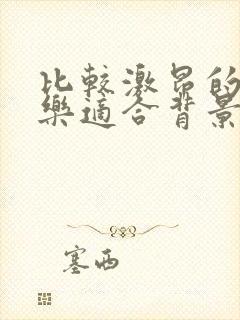 比較激昂的
樂適合背景
塞西